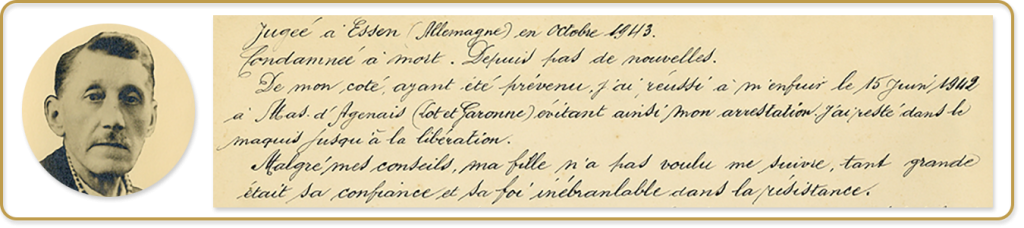 Jugée à Essen (Allemagne) en Octobre 1943.
Condamnée à mort. Depuis pas de nouvelles.
De mon coté, ayant été prévenu, j'ai réussi à m'enfuir le 15 Juin 1942
à Mas. d'Agenais (Lot et Garonne) évitant ainsi mon arrestation. J'ai resté dans le
maquis jusqu'à la libération.
Malgré mes conseils, ma fille n'a pas voulu me suivre, tant grande
était sa confiance et sa foi inébranlable dans la résistance.